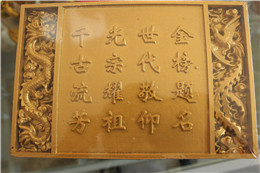 金榜题名
世代敬仰
光宗耀祖
千古流芳